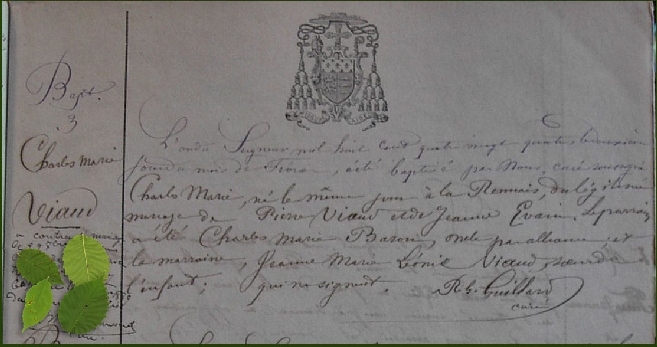 Bapt.
3
Charles Marie
Viaud
L'an du Seigneur mil huit cent quatre vingt quatre le deuxième
jour du mois de Février, a été baptisé par Nous, curé soussigné
Charles Marie, né le même jour à la Remuais, du légitime
mariage de Pierre Viaud et de Jeanne Evain. Le parrain
a été Charles Marie Baron, oncle par alliance, et
la marraine, Jeanne Marie Léonie Viaud, sœur de
l'enfant; qui ne signent. R. G. Guillard
curé
a contracté mariage